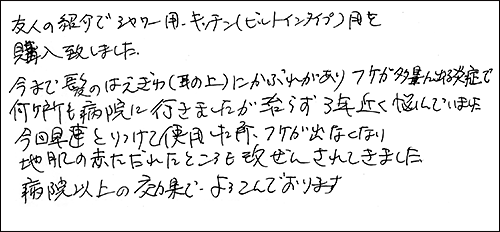 友人の紹介でシャワー用・キッチン(ビルトインタイプ)用を
購入致しました.
今まで髪のはえぎわ(耳の上)にかぶれがありフケが多量に出る炎症で
何ケ所も病院に行きましたが治らず3年近く悩んでいました
今回早速とりつけて使用した所、フケが出なくなり
地肌の赤ただれたところも改ぜんされてきました
病院以上の効果で よろこんでおります